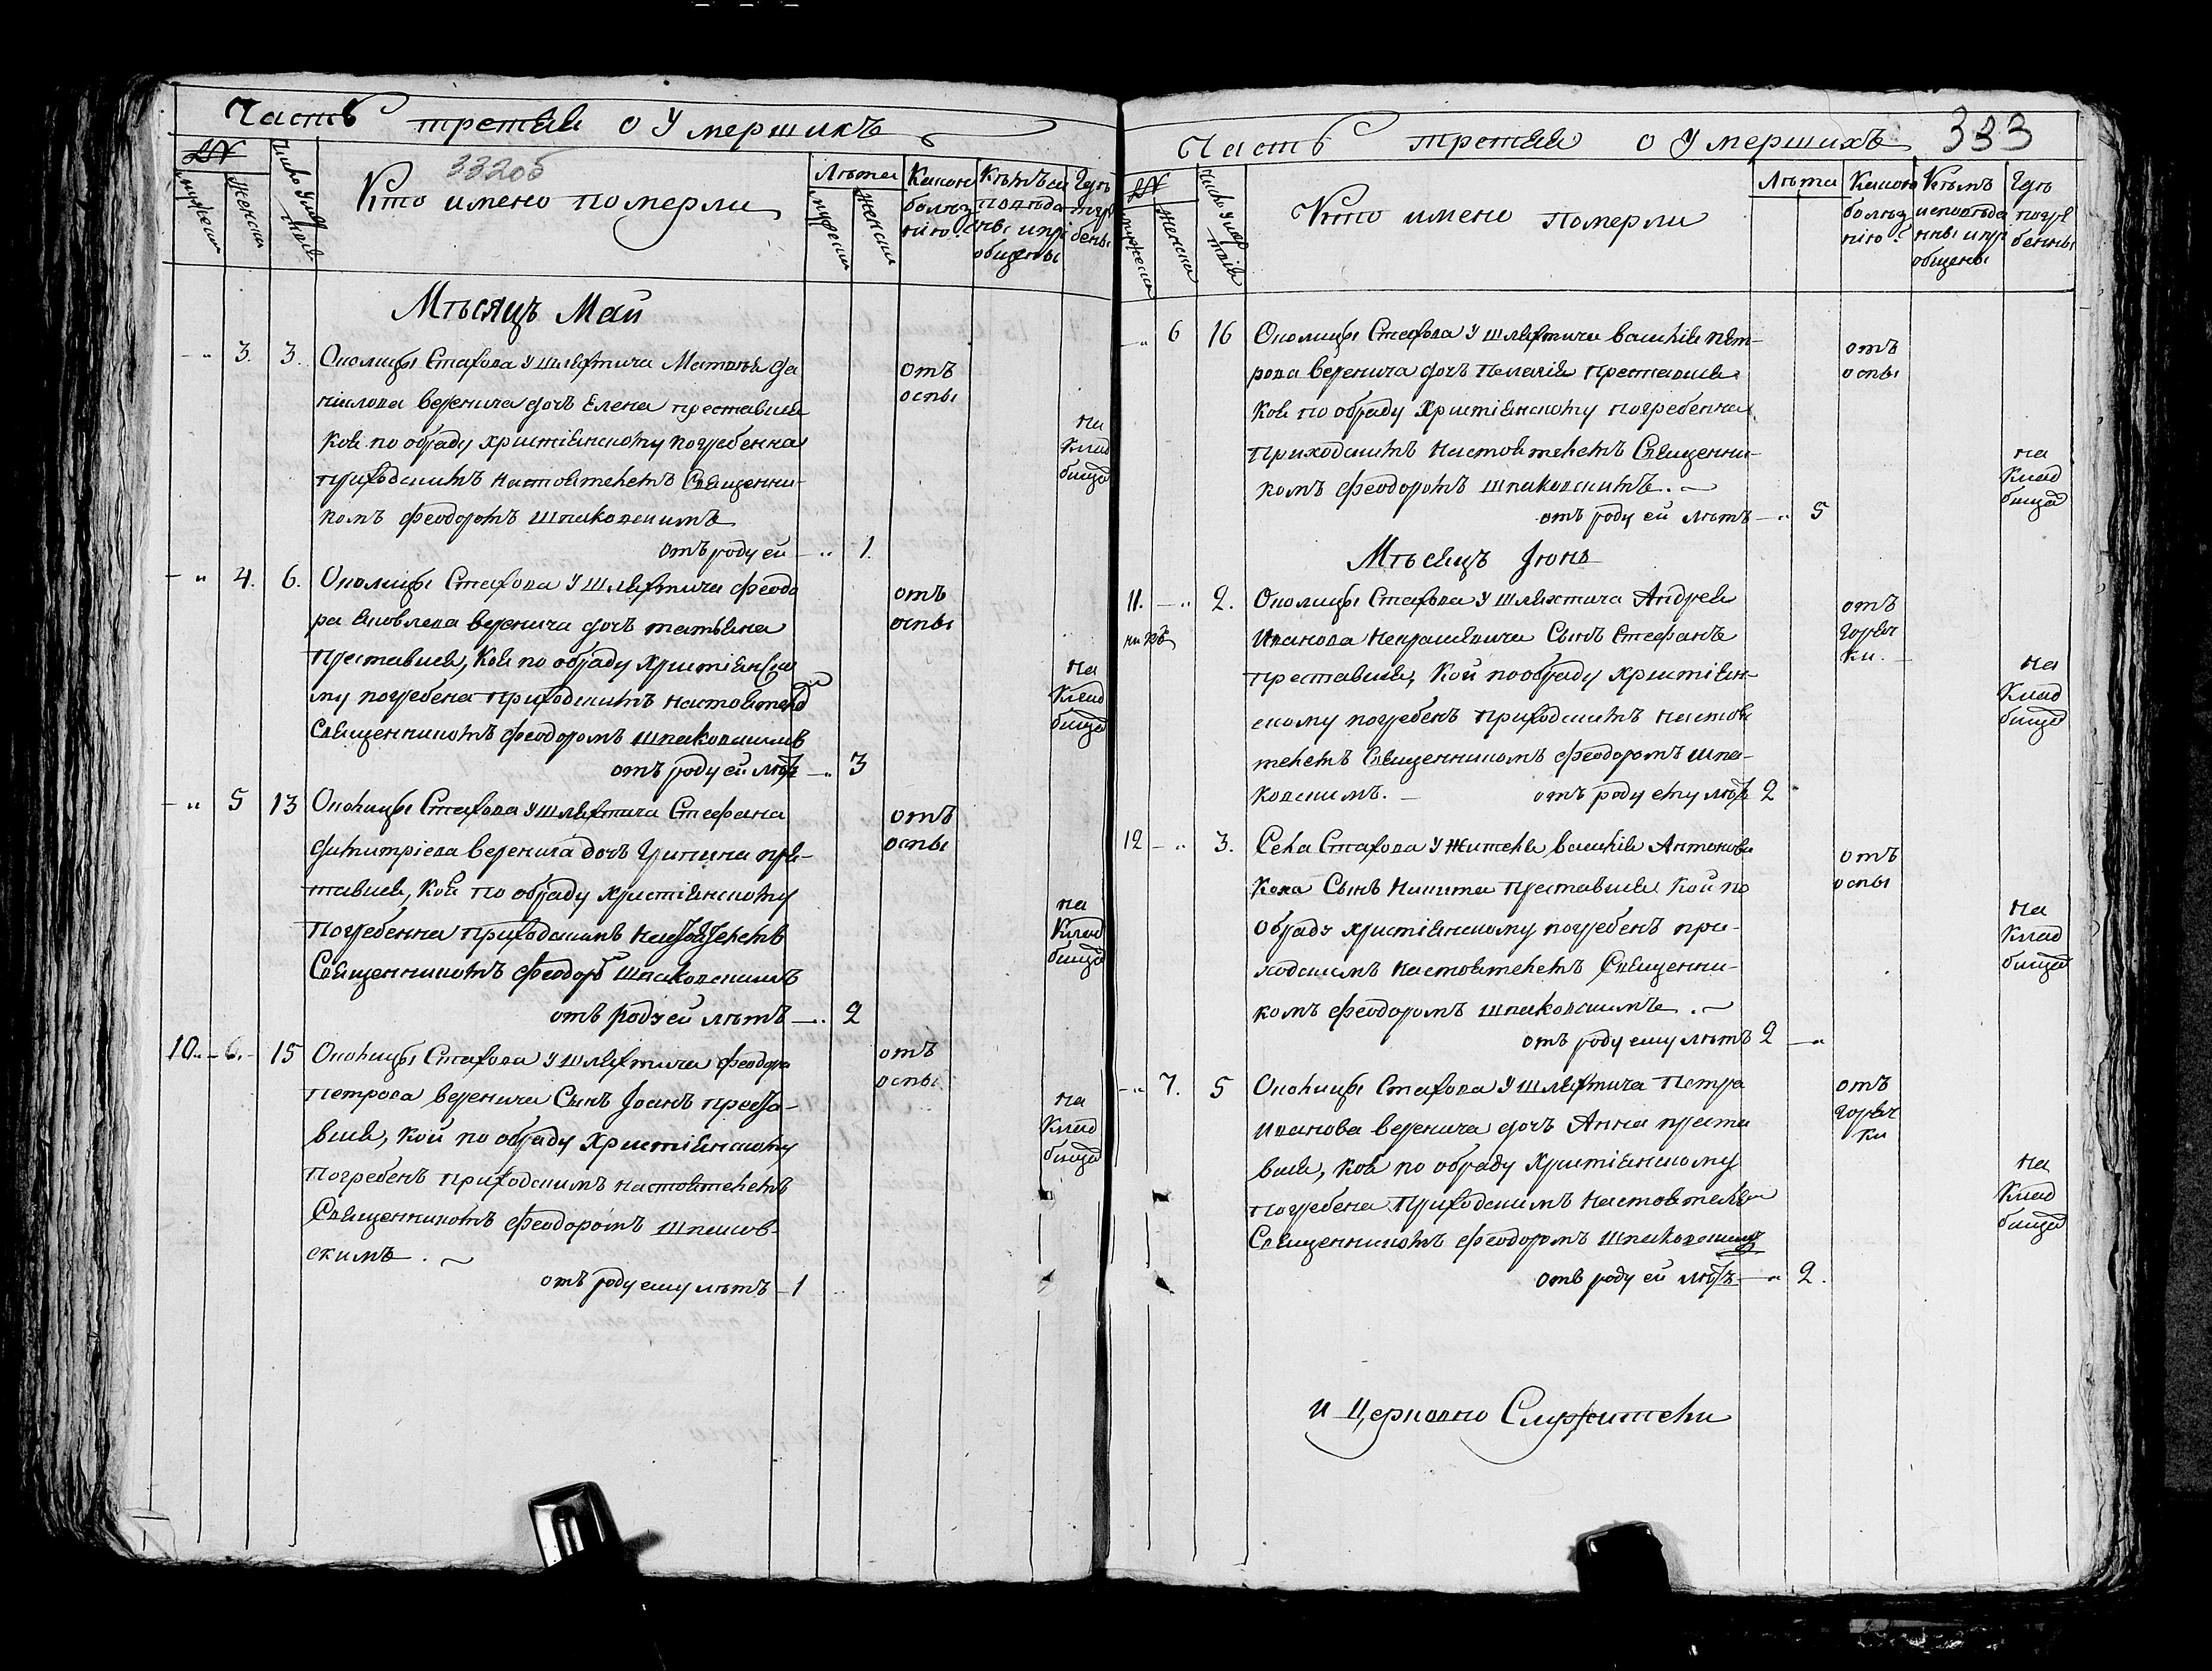 Часть третяя о Умершихъ
332об
№
мужеск
женск
число умер
тия
Кто имено померли
Лѣта
мужеск
женск
Какою
болѣз
нію
Кѣмъ ис
поьвѣда
ны и прі
общены
Гдѣ
погре
бены
Мѣсяцъ Май
- " 3. 3. Околицы Стахова У шляхтича Матѳѣя Да
ніилова Веренича дочь Елена преставися
коя по обряду христіянскому погребенна
приходскимъ настоятелемъ Священни-
комъ Феодоромъ Шпаковскимъ
отъ роду ей - " 1.
отъ
оспы
на
Клад
бищѣ
- " 4. 6. Околицы Стахова У шляхтича Феодо
ра Яковлева Веренича дочь татьяна
преставися, коя по обряду христіянско
му погребена приходскимъ настоятелем
Священникомъ Феодоромъ Шпаковскимъ
отъ роду ей лѣтъ - " 3
отъ
оспы
на
Клад
бищѣ
- " 5 13 Околицы Стахова У шляхтича Стефана
Димитріева Веренича дочь Ирина пре-
тавися, коя по обряду христіянскому
погребенна приходскимъ настоятелемъ
Священникомъ Феодоромъ Шпаковскимъ
отъ роду ей лѣтъ - " 2
отъ
оспы
на
Клад
бищѣ
10. - 6. - 15 Околицы Стахова У шляхтича Феодора
Петрова Веренича Сынъ Іоанъ преста-
вися, кой по обряду христіянскому
погребенъ приходскимъ настоятелемъ
Священникомъ Феодоромъ Шпаков-
скимъ.
отъ роду ему лѣтъ - 1 "
отъ
оспы
на
Клад
бищѣ
Часть третяя о Умершихъ 333
№
мужеска
женска
число умер
тія
Кто имено померли
Лѣта
Какою
болѣз
нію
Кѣмъ
исповѣда
нны и пр
общены
Гдѣ
погре
бенны
- " 6 16 Околицы Стахова У шляхтича Василія Пет-
рова Веренича дочь Пелагія преставися
коя по обряду христіянскому погребенна
приходскимъ настоятелемъ Священни-
комъ Феодоромъ Шпаковскимъ.
отъ роду ей лѣтъ - " 5
отъ
оспы
на
Клад
бищѣ
Мѣсяцъ Іюнь
11. - " 2. Околицы Стахова У шляхтича Андрея
Иванова Некрашевича Сынъ Стефанъ
преставися, кой по обряду христіян-
скому погребенъ приходскимъ настоя
телемъ Священникомъ Феодоромъ Шпа-
ковскимъ. - отъ роду ему лѣтъ 2 "
отъ
горяч
ки.
на
Клад
бищѣ
12 - " 3. Села Стахова У Жителя Василія Антонова
Кока Сынъ Никита преставися кой по
обряду христіянскому погребенъ при-
ходскимъ настоятелемъ Священни-
комъ Феодоромъ Шпаковскимъ.
отъ роду ему лѣтъ 2 - "
отъ
оспы
на
Клад
бищѣ
- " 7. 5 Околицы Стахова У шляхтича Петра
Иванова Веренича дочь Анна преста
вися, коя по обряду христіянскому
погребена приходскимъ настоятелем
Священникомъ Феодоромъ Шпаковскимъ
отъ роду ей лѣтъ - " 2.
отъ
горяч
ки
на
Клад
бищѣ
и Церковно Служители